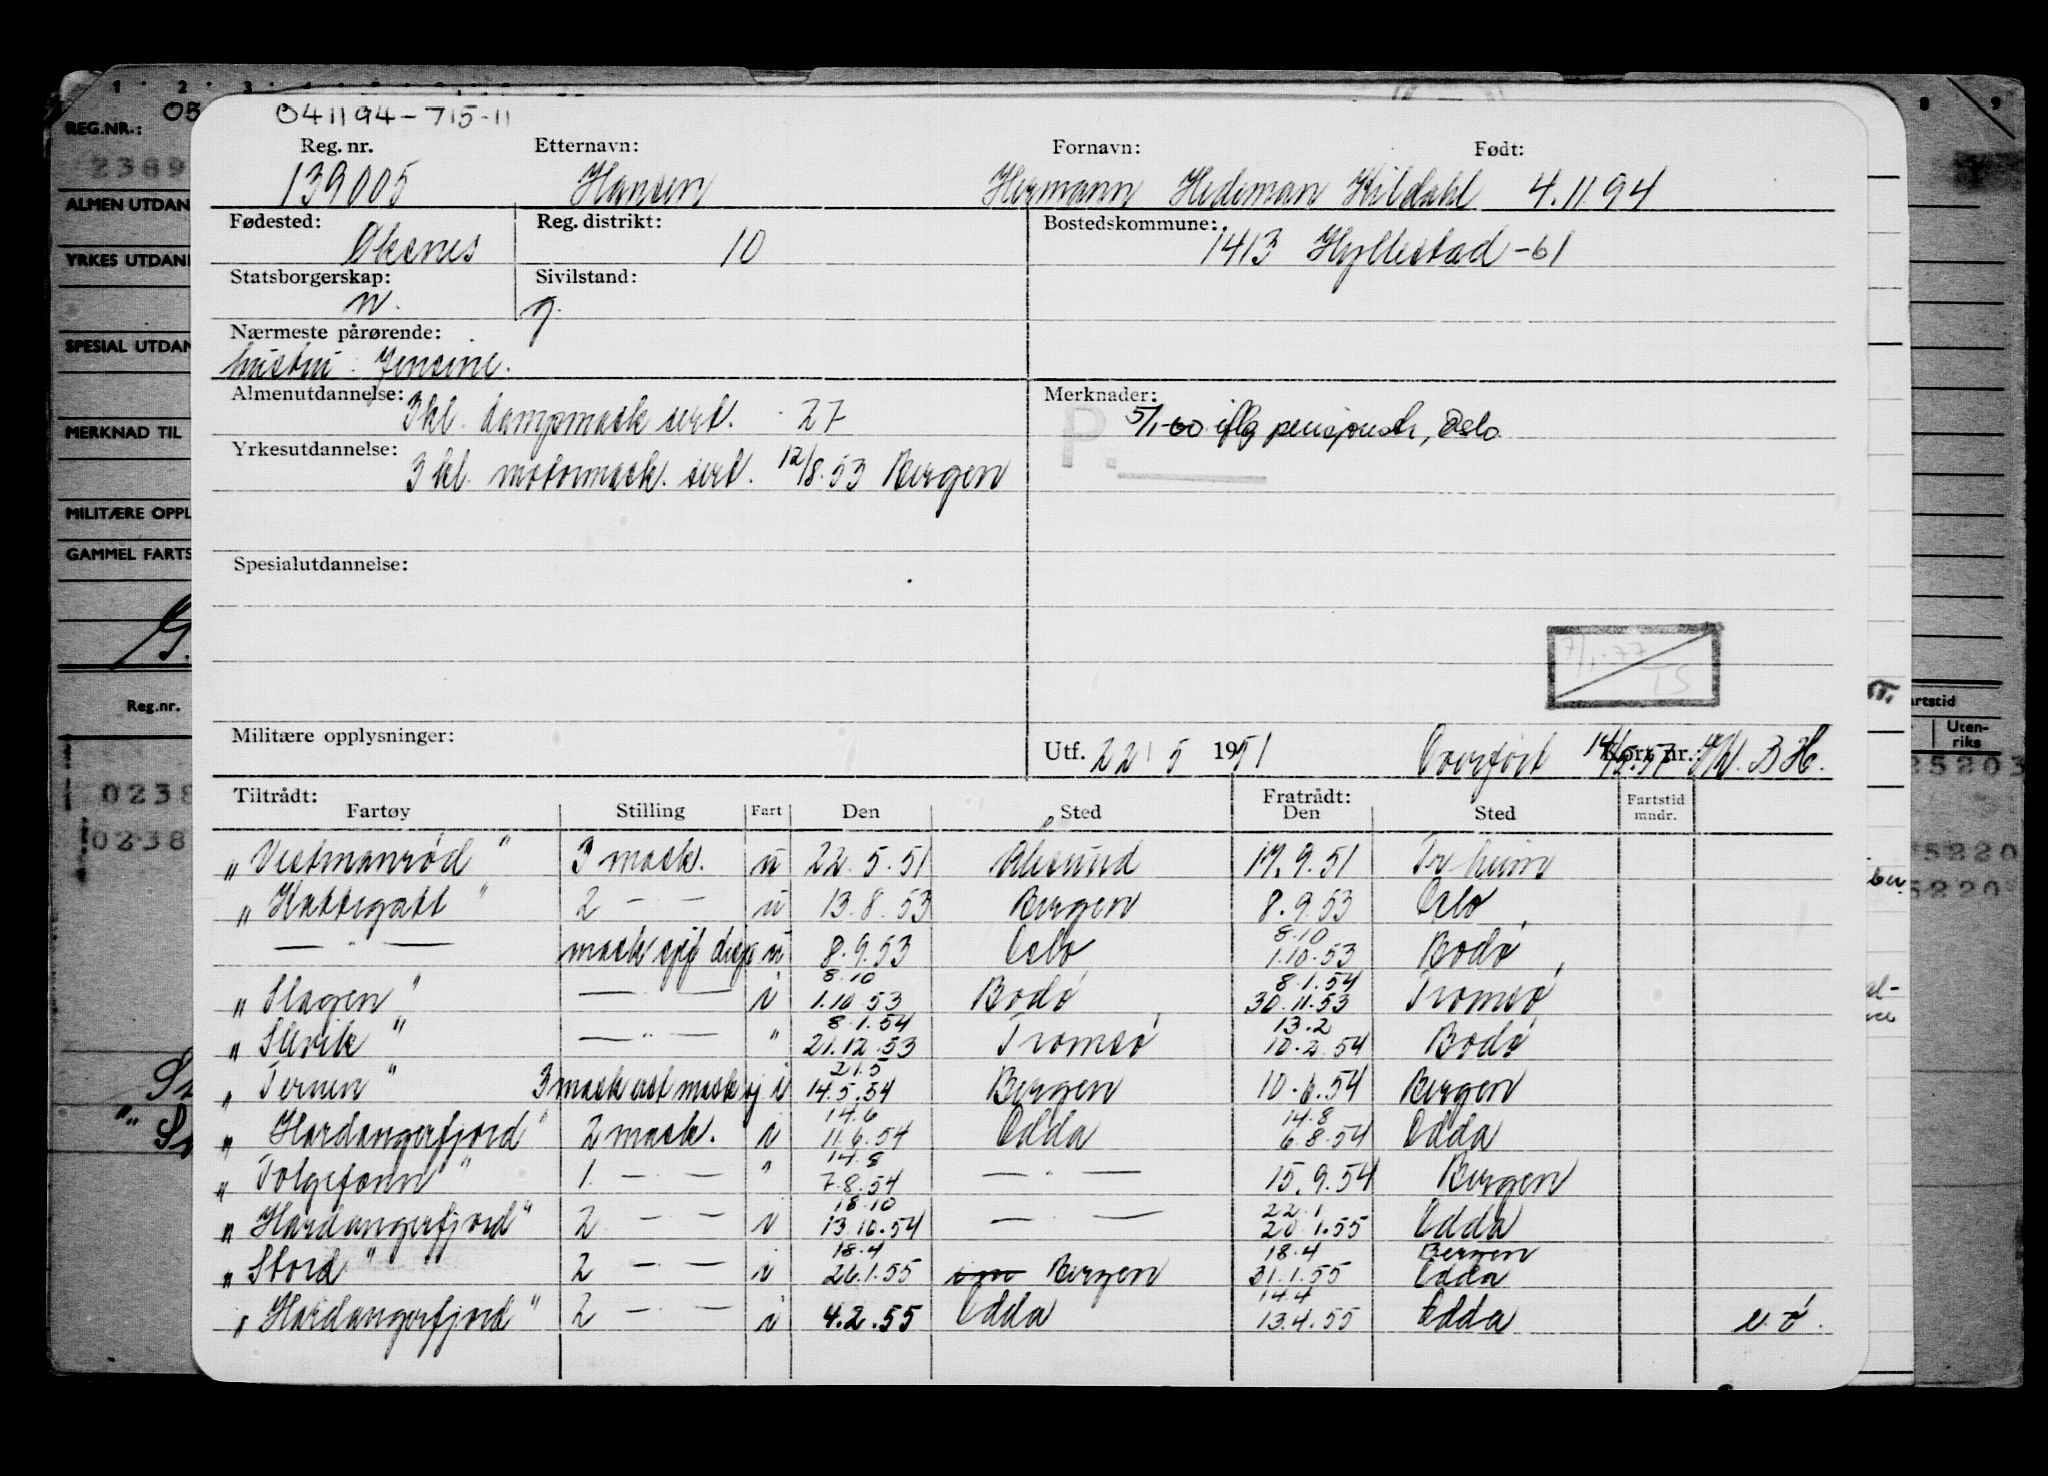 1 2 3 4 8 9
041194-715-11
REG.NR.: 05
Reg. nr. Etternavn: Fornavn: Født:
2389
139005 Hansen Hermann Hedeman Kildahl 4.11.94
ALMEN UTDAN
Fødested: Reg. distrikt: Bostedskommune:
Øksnes 10 1413 Hyllestad -61
YRKES UTDAN
Statsborgerskap: Sivilstand:
n. g.
Nærmeste pårørende:
SPESIAL UTDAN
hustru Jensine.
Almenutdannelse: Merknader:
3 kl. dampmask sert. 27
P. 5/1-60 iflg pensjonstr, Oslo
MERKNAD TIL
Yrkesutdannelse:
3 kl. motormask. sert. 12/8.53 Bergen
MILITÆRE OPPL
GAMMEL FARTS
Spesialutdannelse:
7/1.77
TS
Reg.nr.
Fartstid
Uten-
riks
Militære opplysninger: Utf. 22 5 1951 Overført Kort nr.: B H.
Tiltrådt: Fratrådt:
Fartøy Stilling Fart Den Sted Den Sted Fartstid mndr.
0238
0238
25203
„Vestmanrød" 3 mask. u 22.5.51 Ålesund 17.9.51 Tr.heim
„Kattegatt" 2 — " — u 13.8.53 Bergen 8.9.53 Oslo
8.10
— " — mask sjef disp u 8.9.53 Oslo 1.10.53 Bodø
8.10 8.1.54
„Slagen" — " — i 1.10.53 Bodø 30.11.53 Tromsø
8.1.54 13.2
— " — " 21.12.53 Tromsø 10.2.54 Bodø
21.5
„Ternen" 3 mask ast mask sj i 14.5.54 Bergen 10.6.54 Bergen
14.6 14.8
„Hardangerfjord" 2 mask. i 11.6.54 Odda 6.8.54 Odda
14.8
„Folgefonn" 1. — " — " 7.8.54 — " — 15.9.54 Bergen
18.10 22.1
„Hardangerfjord" 2 — " — i 13.10.54 — " — 20.1.55 Odda
18.4 18.4 Bergen
„Stord" 2 — " — i 26.1.55 Bergen 31.1.55 Odda
14.4
„Hardangerfjord" 2 — " — i 4.2.55 Odda 13.4.55 Odda e.ø.